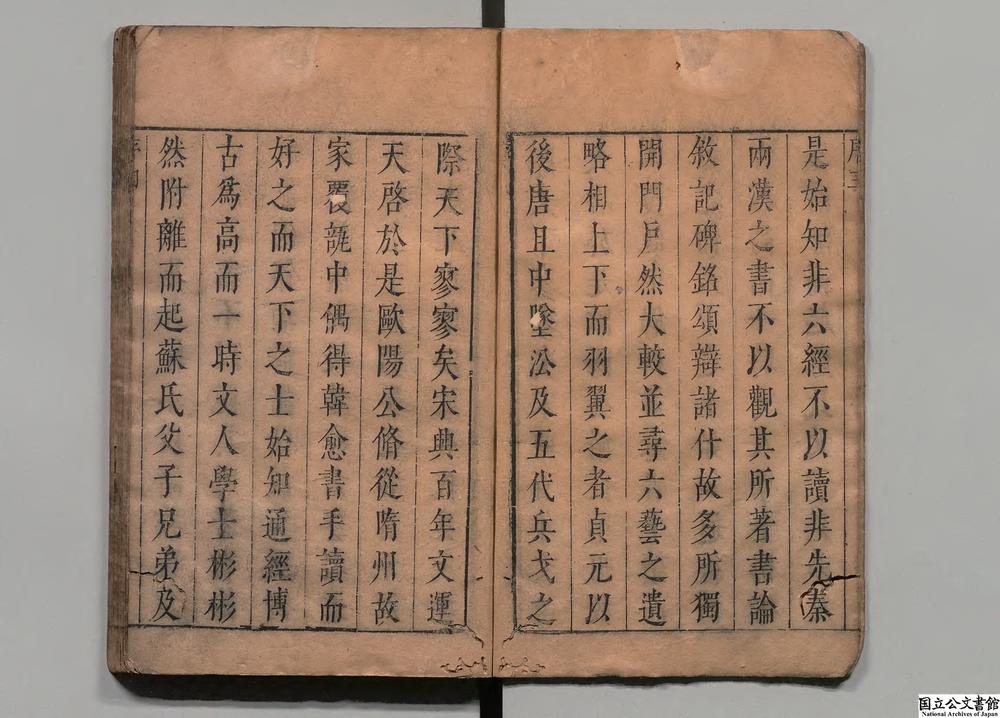 是始知非六經不以讀非先秦
兩漢之書不以觀其所著書論
敘記碑銘頌辯諸什故多所獨
開門戶然大較並尋六藝之遺
略相上下而羽翼之者貞元以
後唐且中墜沿及五代兵戈之
際天下寥寥矣宋興百年文運
天啓於是歐陽公脩從隋州故
家覆瓿中偶得韓愈書手讀而
好之而天下之士始知通經博
古爲高而一時文人學士彬彬
然附離而起蘇氏父子兄弟及
国立公文書館
National Archives of Japan